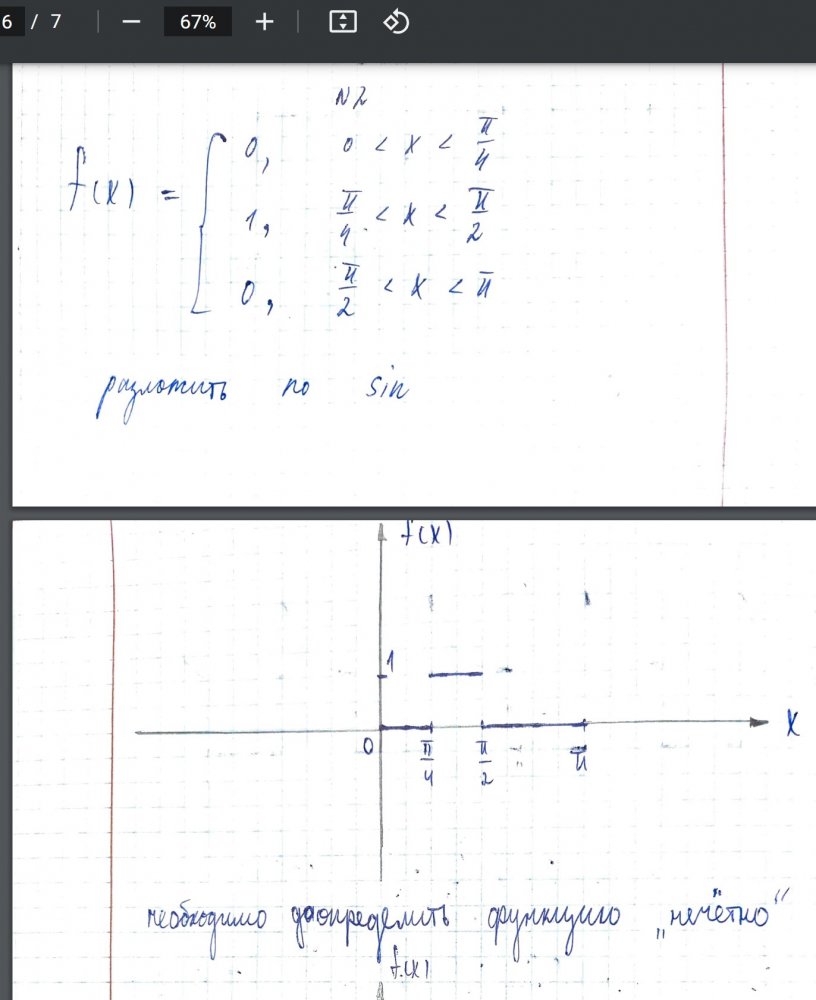 6 / 7 67%
N2
f(x) = { 0, 0 < x < π/4
1, π/4 < x < π/2
0, π/2 < x < π
разложить по sin
f(x)
1
0 π/4 π/2 π x
необходимо доопределить функцию „нечётно“
f(x)